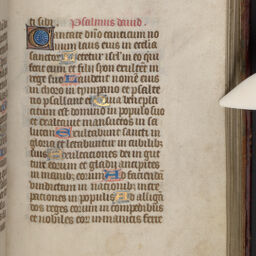 ti sibi. Psalmus david.
Cantate dño canticum no
uum laus eius in ecclia
sanctoꝝ Letetur isrl' in eo qui
fecit eum et filij syon exultẽt in
rege suo Laudent nomẽ eius
in choro in tympano et psalte
rio psallant ei Quia bñplaci
tum est domino in populo suo
et exaltauit mansuetos in sa
lutem Exultabunt sancti in
gloria et letabuntur in cubilib;
suis Exultaciones dei in gut
ture eorum et gladij ancipites
in manib; eorum Ad faciendã
vindictam in nationib; incre
pationes in populis Ad alligã
dos reges eorum in compedibus
et nobiles eoꝝ in manicis ferre